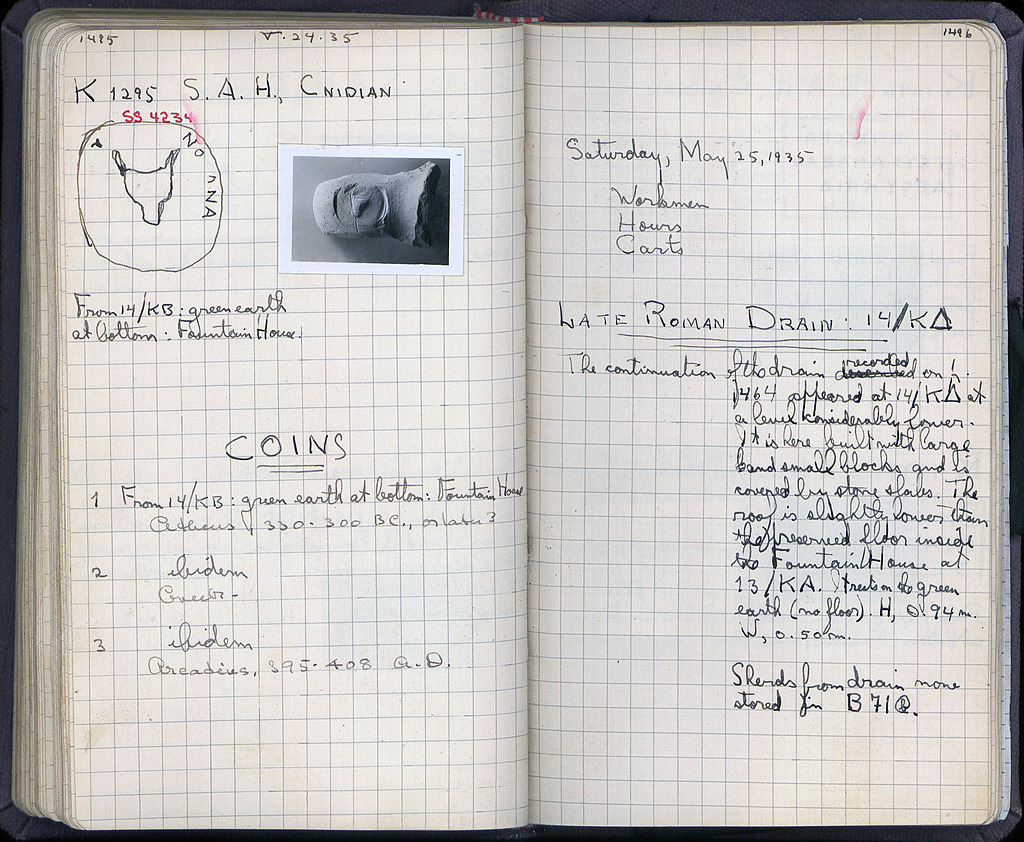 1495
V. 24. 35
K 1295 S. A. H., CNIDIAN
SS 4234
From 14/KB: green earth
at bottom: Fountain House.
COINS
1 From 14/KB: green earth at bottom: Fountain House
330-300 BC., or later?
2 ibidem
Greek-
3 ibidem
Arcadius, 395-408 A.D.
1496
Saturday, May 25, 1935
Workmen
Hours
Carts
LATE ROMAN DRAIN: 14/KΔ
The continuation of the drain recorded on p.
1464 appeared at 14/KΔ at
a level considerably lower.
It is here built with large
and small blocks and is
covered by stone slabs. The
roof is slightly lower than
the preserved floor inside
the Fountain House at
13/KA. It rests on the green
earth (no floor). H, 0.94 m.
W, 0.50 m.
Sherds from drain none
stored in B 71